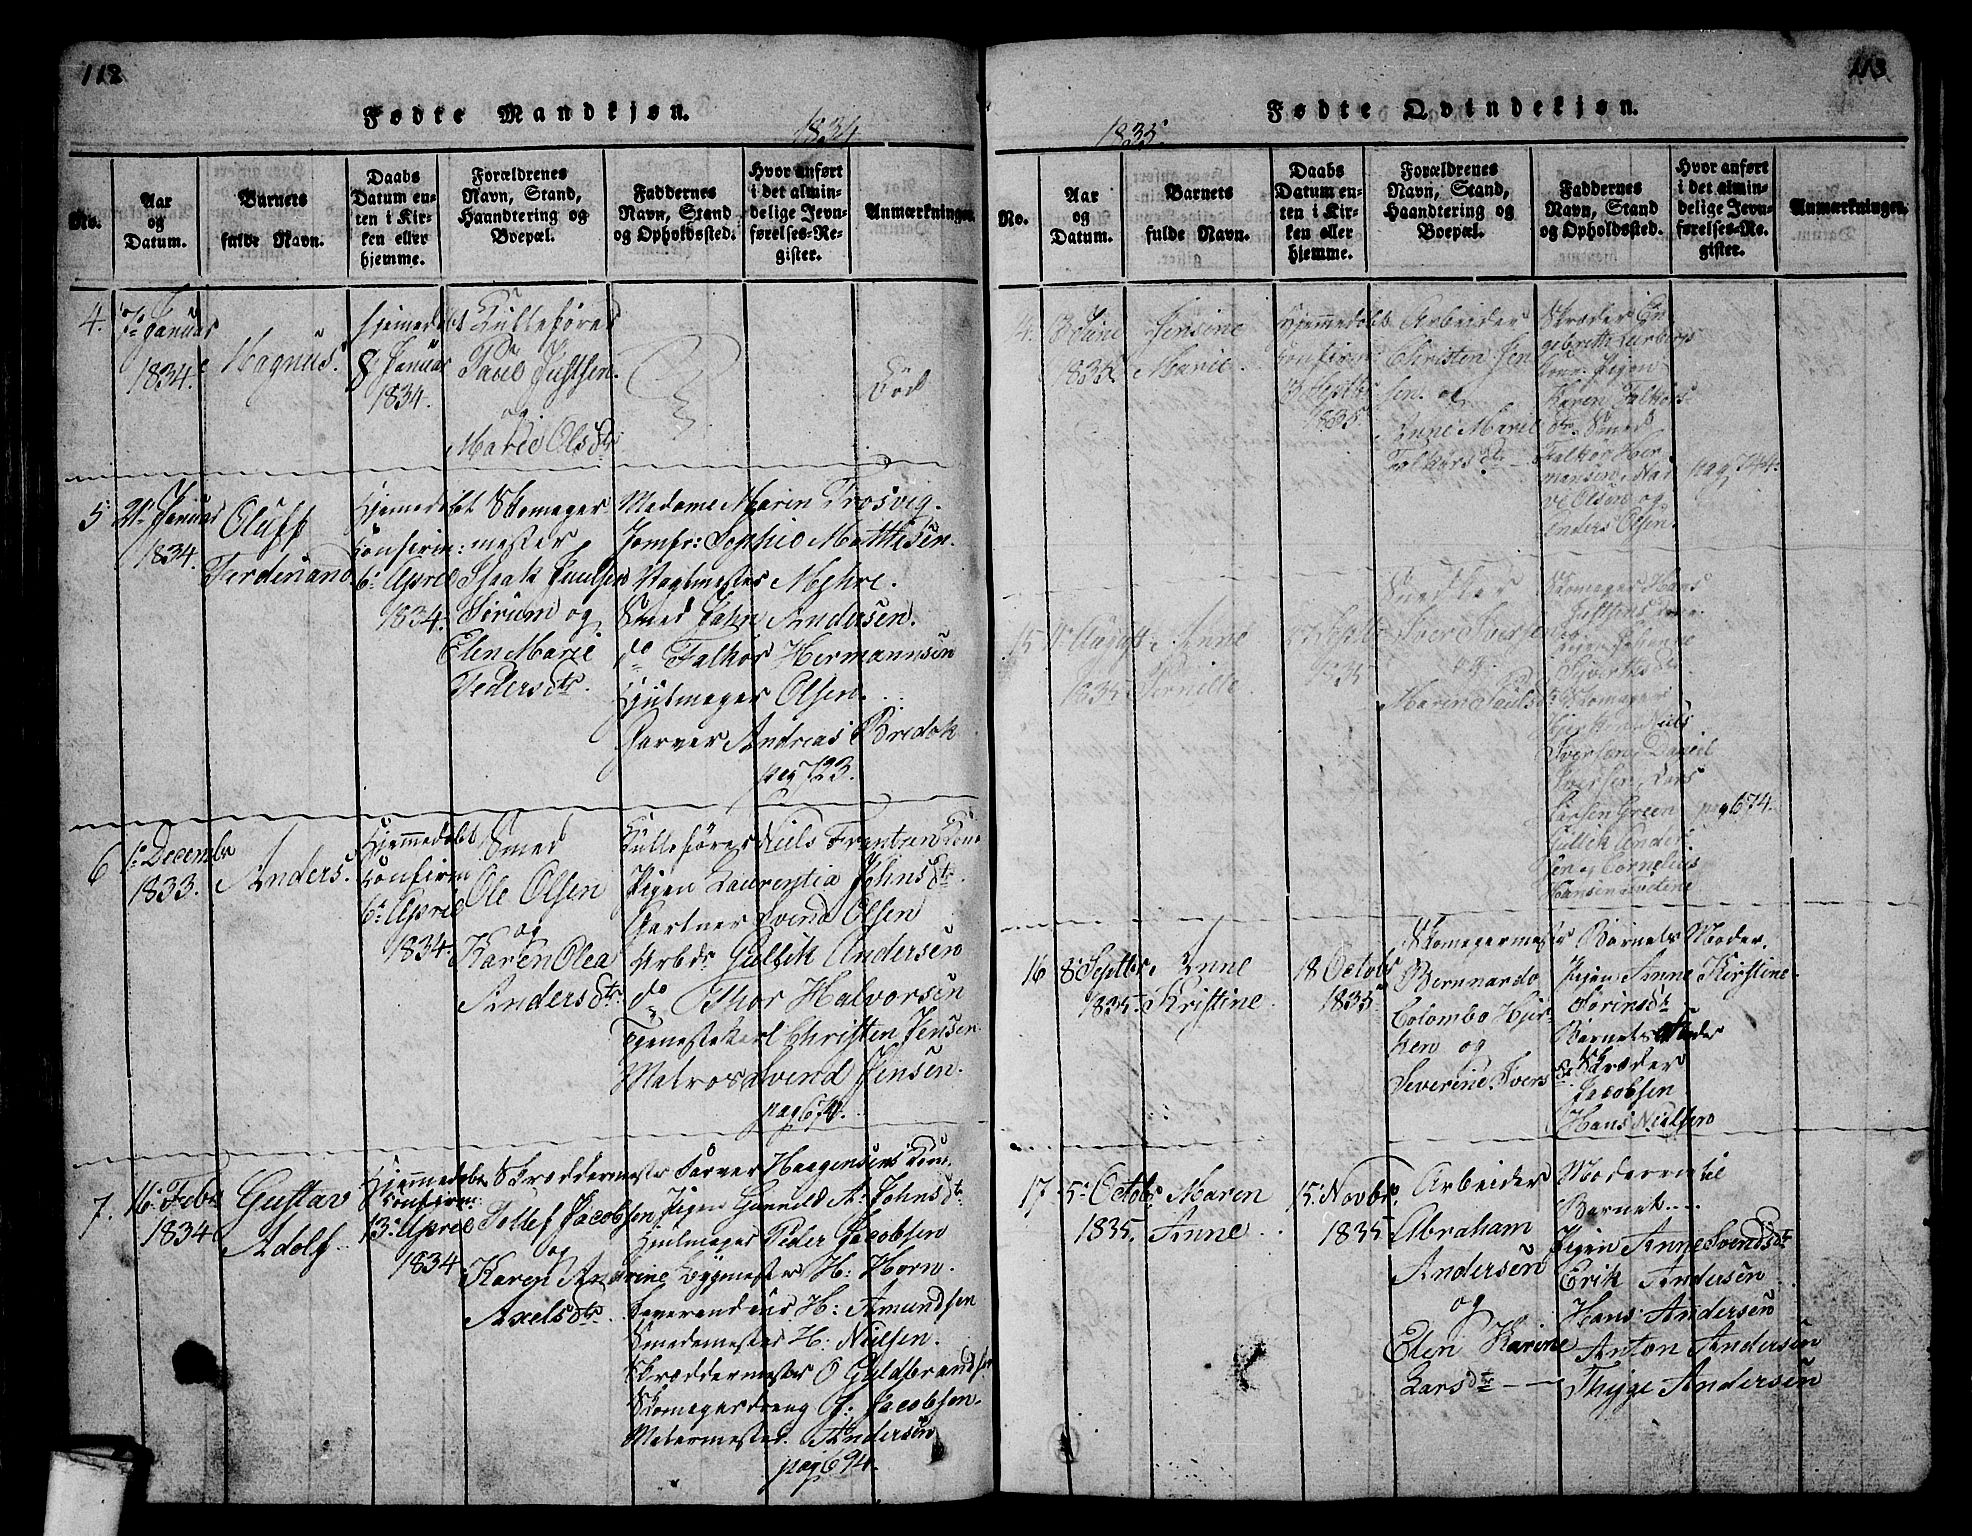 112
Fødte Mandkjøn.
1834
No.
Aar
og
Datum.
Barnets
fulde Navn.
Daabs
Datum en-
ten i Kir-
ken eller
hjemme.
Forældrenes
Navn, Stand,
Haandtering og
Boepæl.
Faddernes
Navn, Stand
og Opholdssted.
Hvor anført
i det almin-
delige Jevn-
førelses-Re-
gister.
Anmærkninger.
4.
7de Januar
1834.
Magnus.
Hjemedøbt
8de Januar
1834.
Paul Justsen.
og
Marie Olsdtr
Død
5
21 Januar
1834.
Oluff
Ferdinand.
Hjemedøbt
Confirm:
6te April
1834.
Skomager
mester
Isaak Paulsen
Sørum og
Elen Marie
Pedersdtr.
Madame Maren Trosvig.
Jomfr: Sophie Mathisen.
Vagtmester Myhre.
Smed John Andersen.
do Falkor Hermannsen
Hjulmager Olsen.
Garver Andreas Bredok
pag 723.
6
1te Decembr
1833.
Anders.
Hjemmedøbt
Confirm
6te April
1834.
Smed
Ole Olsen
og
Karen Olea
Andersdtr.
Kullefører Niels Frantzen Kone
Pigen Laurentia Johnsdtr.
Gartner Svend Olsen
Arbdr Gullik Andersen
do Thor Halvorsen
Tjenestekarl Christen Jensen
Matros Svend Jensen.
pag 674.
7.
16 Febr
1834
Gustav
Adolf
Hjemmedøbt
Confirm:
13 April
1834.
Skræddermestr
Tollef Jacobsen
og
Karen Andrine
Axelsdtr.
Farver Haagensens Kone.
Pigen Gunnild A. Johnsdtr.
Hjulmager Peder Jacobsen
Bygmester H: Horn.
H: Amundsen
Smedemester H: Nielsen.
Skræddermester O Guldbrands
Skomagerdreng J: Jacobsen.
Malermester. Andersen
pag 694.
113
Fødte Qvindekjøn.
1835.
No.
Aar
og
Datum.
Barnets
fulde Navn.
Daabs
Datum en-
ten i Kir-
ken eller
hjemme.
Forældrenes
Navn, Stand,
Haandtering og
Boepæl.
Faddernes
Navn, Stand
og Opholdssted.
Hvor anført
i det almin-
delige Jevn-
førelses-Re-
gister.
Anmærkninger.
4.
1835
Jensine
Marie.
Hjemmedøbt
Confirm:
3 Septbr
1835.
Arbeider
Christen Jen
sen. og
Anne Marie
Falkorsdtr
Skræder En
gebreth
Kone. Pigen
Karen Falkors
dtr. Smed
Falkor Her
mansen
Olsen og
Anders Olsen.
pag 744.
15
4 August
1835
Anne
Pernille
Septbr
1835
Snedker
Iver Iversen
og
Maren Paulsd
Skomager Hans
Justsens Kone
Pigen Johanne
Sivertsdtr
Skomager
Niels
Iversen, Daniel
Iversen, Lars
Larsen Green
Gullik Ander
sen og Cornelius
Hansen
pag 674.
16
8 Septbr
1835.
Anne
Kristine.
18 Octobr
1835
Skomagermestr
Bernnardo
Colombo Hjer
ken og
Severine Ivers
dtr
Barnets Moder.
Pigen Anne Kirstine
Sørensdtr
Barnets Fader
Skræder
Jacobsen
Hans Nielsen
17
5 Octobr
1835.
Maren
Anne
15 Novbr.
1835
Arbeider
Abraham
Andersen
og
Elen Karine
Larsdtr
Moderen til
Barnet....
Pigen Anne Svendsdtr
Erik Andersen
Hans Andersen
Anton Andersen
Thyge Andersen